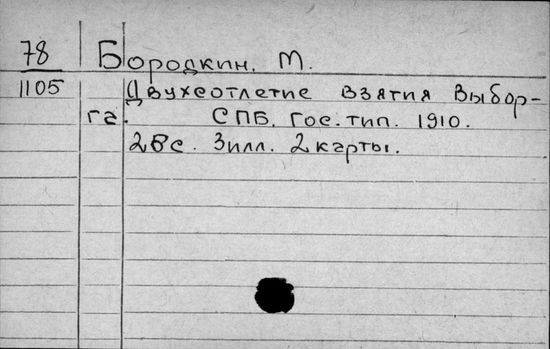 78 Бородкин, М.
1105 Двухсотлетие взятия Выбор-
га. СПБ, Гос. тип. 1910.
28 с. 3 илл. 2 карты.